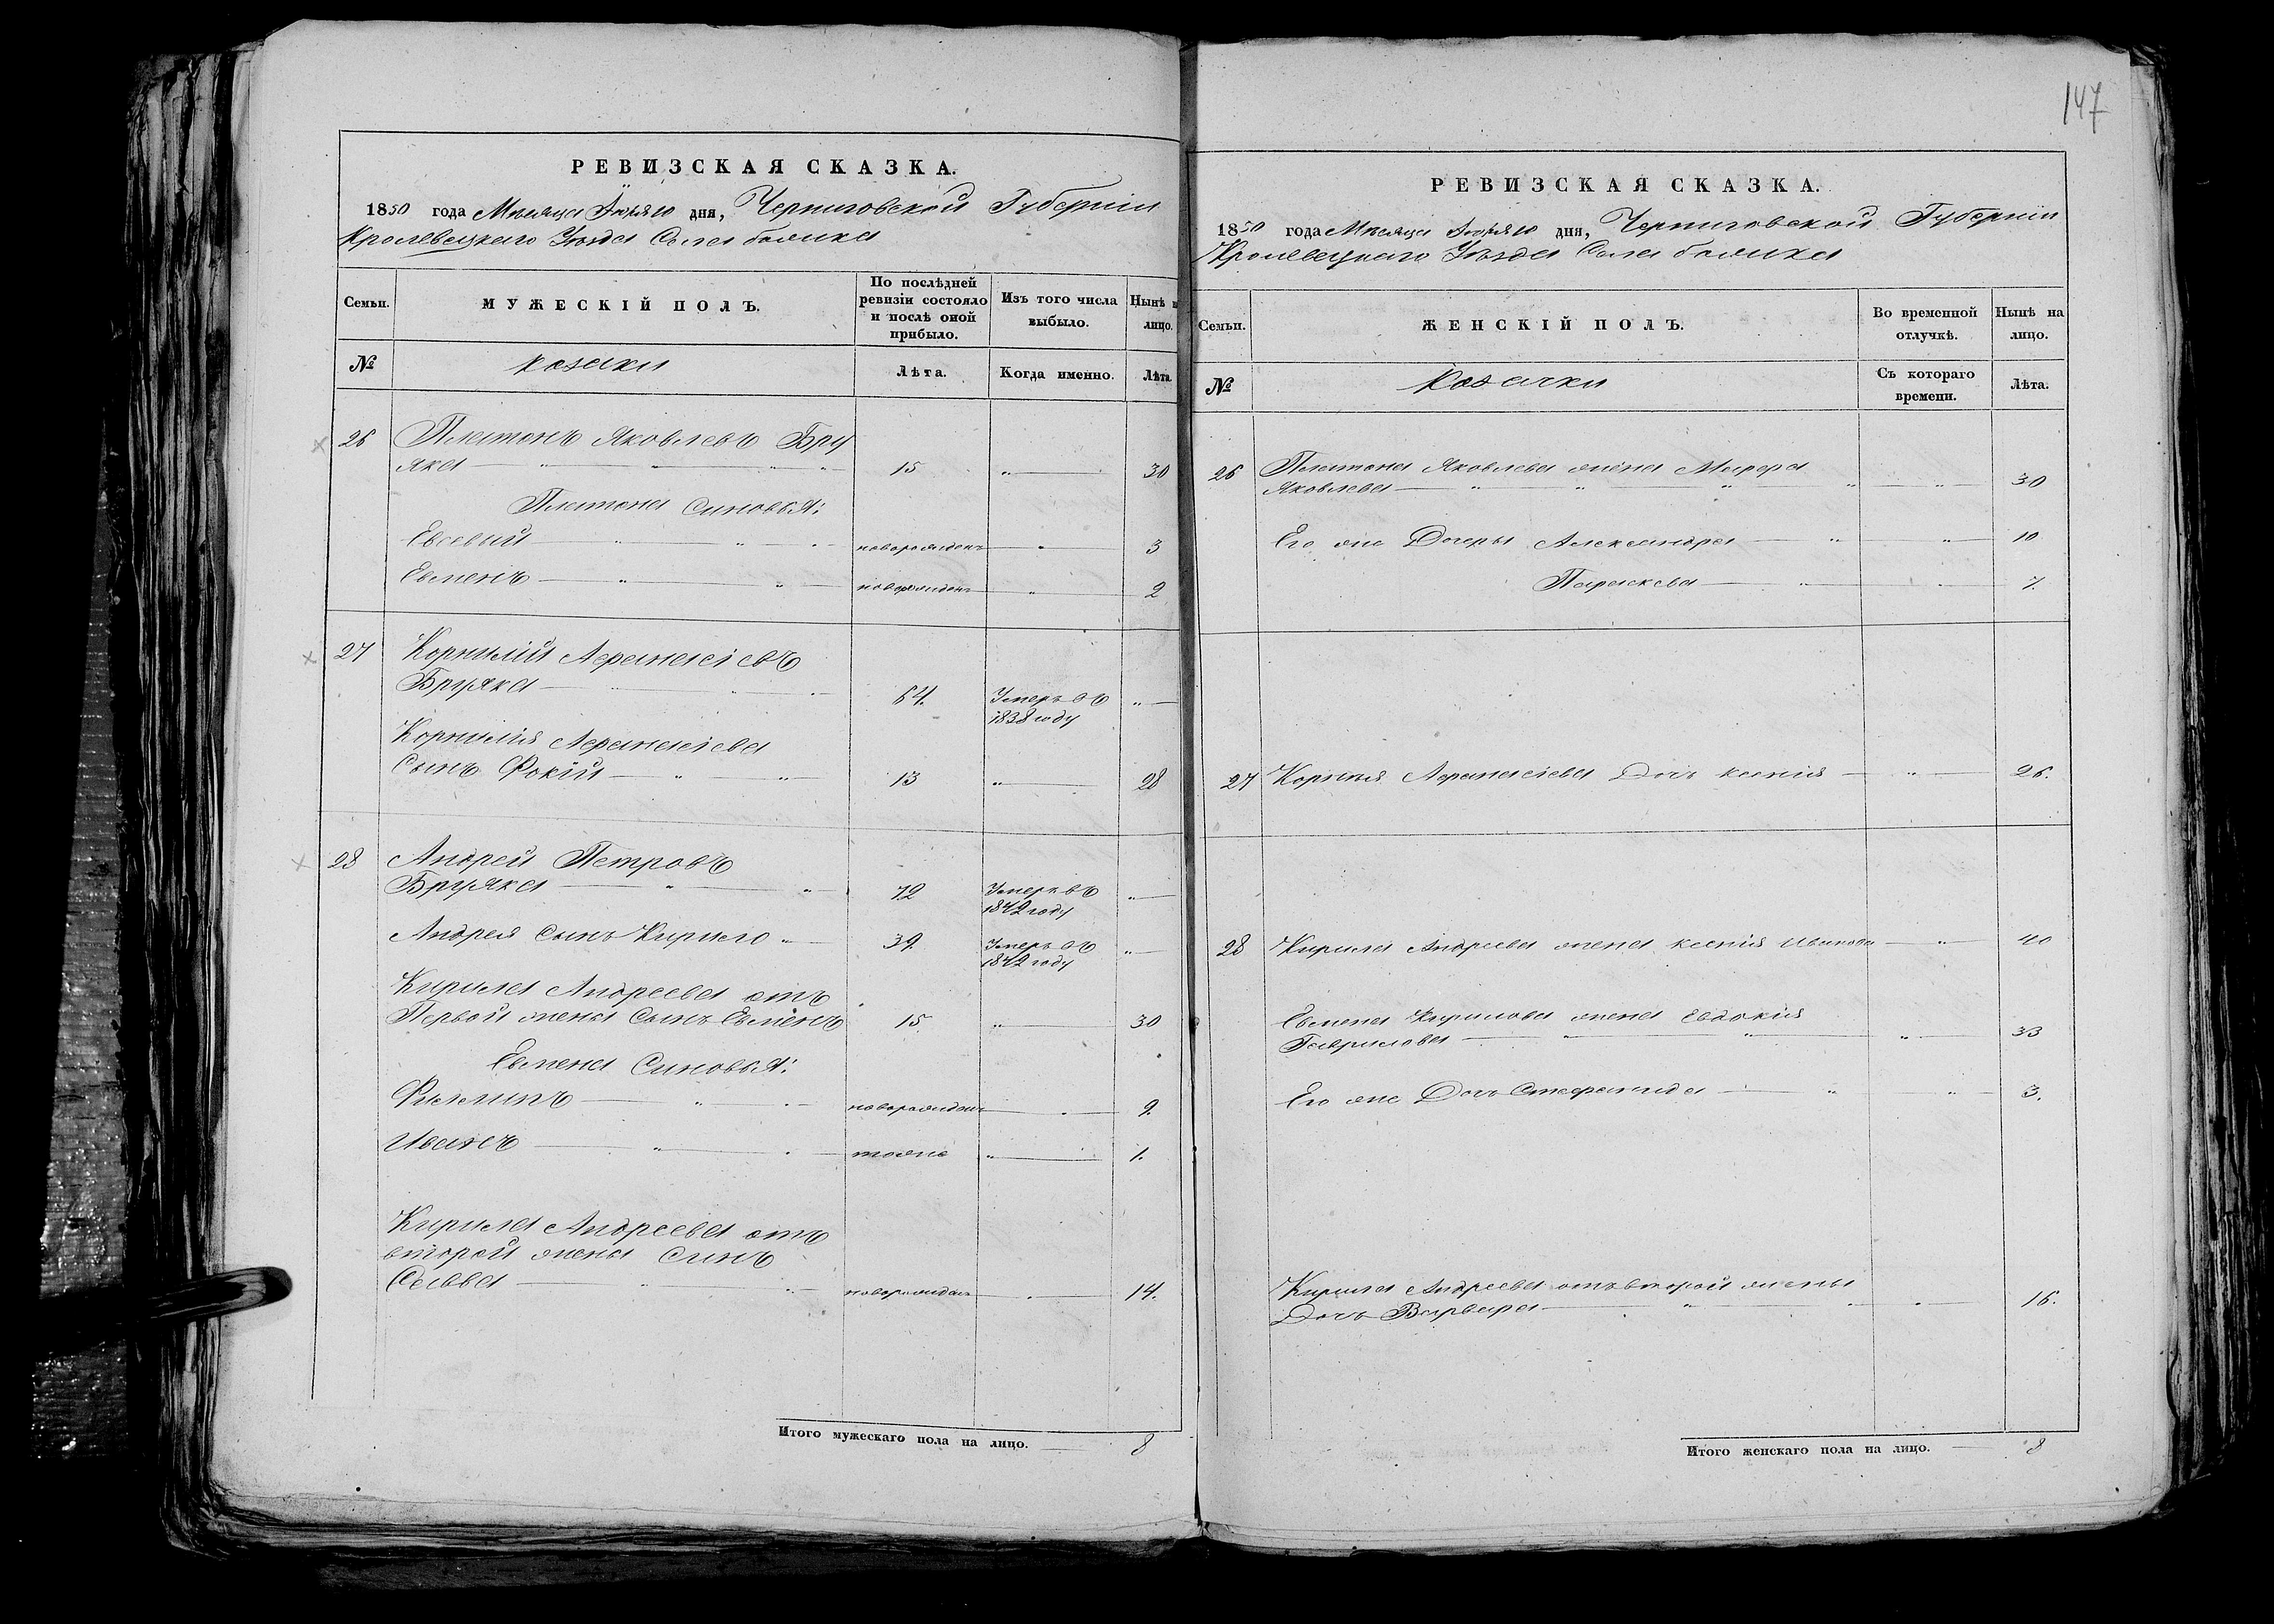 147
РЕВИЗСКАЯ СКАЗКА.
1850 года Мѣсяца Іюля 10 дня, Черниговской Губерніи
Кролевецкаго Уѣзда Села
Семьи. МУЖЕСКІЙ ПОЛЪ. По послѣдней ревизіи состояло и послѣ оной прибыло. Изъ того числа выбыло. Нынѣ на лицо.
№ козаки Лѣта. Когда именно. Лѣта.
26 Платонъ Яковлевъ Бру
яка 15 30
Платона Синовья:
Евсевий новорожденъ 3
Евменъ новорожденъ 2
27 Корнилій Афанасіевъ
Бруяка 64. Умеръ въ
1838 году
Корнилія Афанасіева
Сынъ Фокій 13 28
28 Андрей Петровъ
Бруяка 72 Умеръ въ
1842 году
Андрея сынъ Кирило 39 Умеръ въ
1842 году
Кирила Андреева отъ
Первой жены Сынъ Евменъ 15 30
Евмена Синовья:
Филипъ новорожденъ 9
Иванъ тоже 1.
Кирила Андреева отъ
второй жены синъ
Савва новорожденъ 14.
Итого мужескаго пола на лицо. 8
РЕВИЗСКАЯ СКАЗКА.
1850 года Мѣсяца Іюля 10 дня, Черниговской Губерніи
Кролевецкаго Уѣзда Села
Семьи. ЖЕНСКІЙ ПОЛЪ. Во временной отлучкѣ. Нынѣ на лицо.
№ Козачки Съ котораго времени. Лѣта.
26 Платона Яковлева жена Марфа
Яковлева 30
Его же Дочеры Александра 10
Параскева 7.
27 Корнилія Афанасіева Дочь ксенія 26.
28 Кирила Андреева жена ксенія Иванова 40
Евмена Кирилова жена Евдокія
Гаврилова 33
Его же Дочь Стефанида 3.
Кирила Андреева отъ второй жены
Дочь Варвара 16.
Итого женскаго пола на лицо. 8